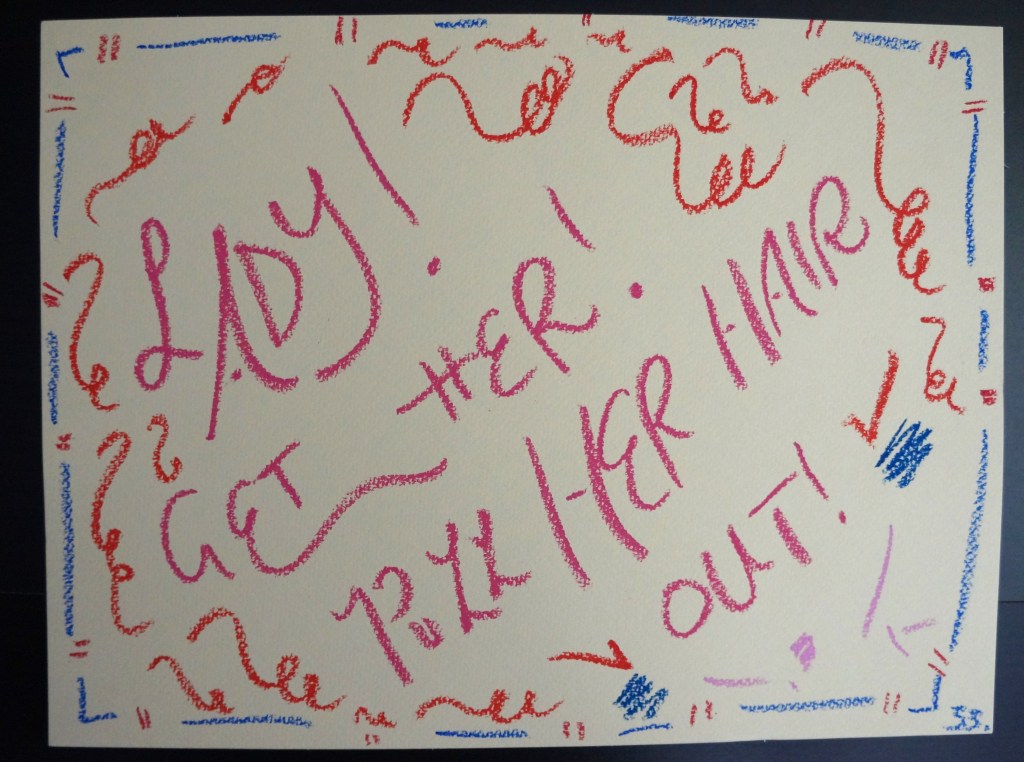 LADY!
GET HER!
PULL HER HAIR
OUT!